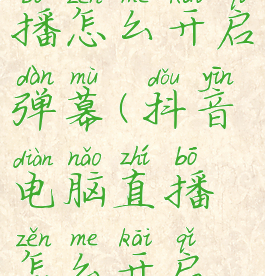 播怎么开启
dàn mù dǒu yīn
弹幕(抖音
diàn nǎo zhí bō
电脑直播
zěn me kāi qǐ
怎么开启